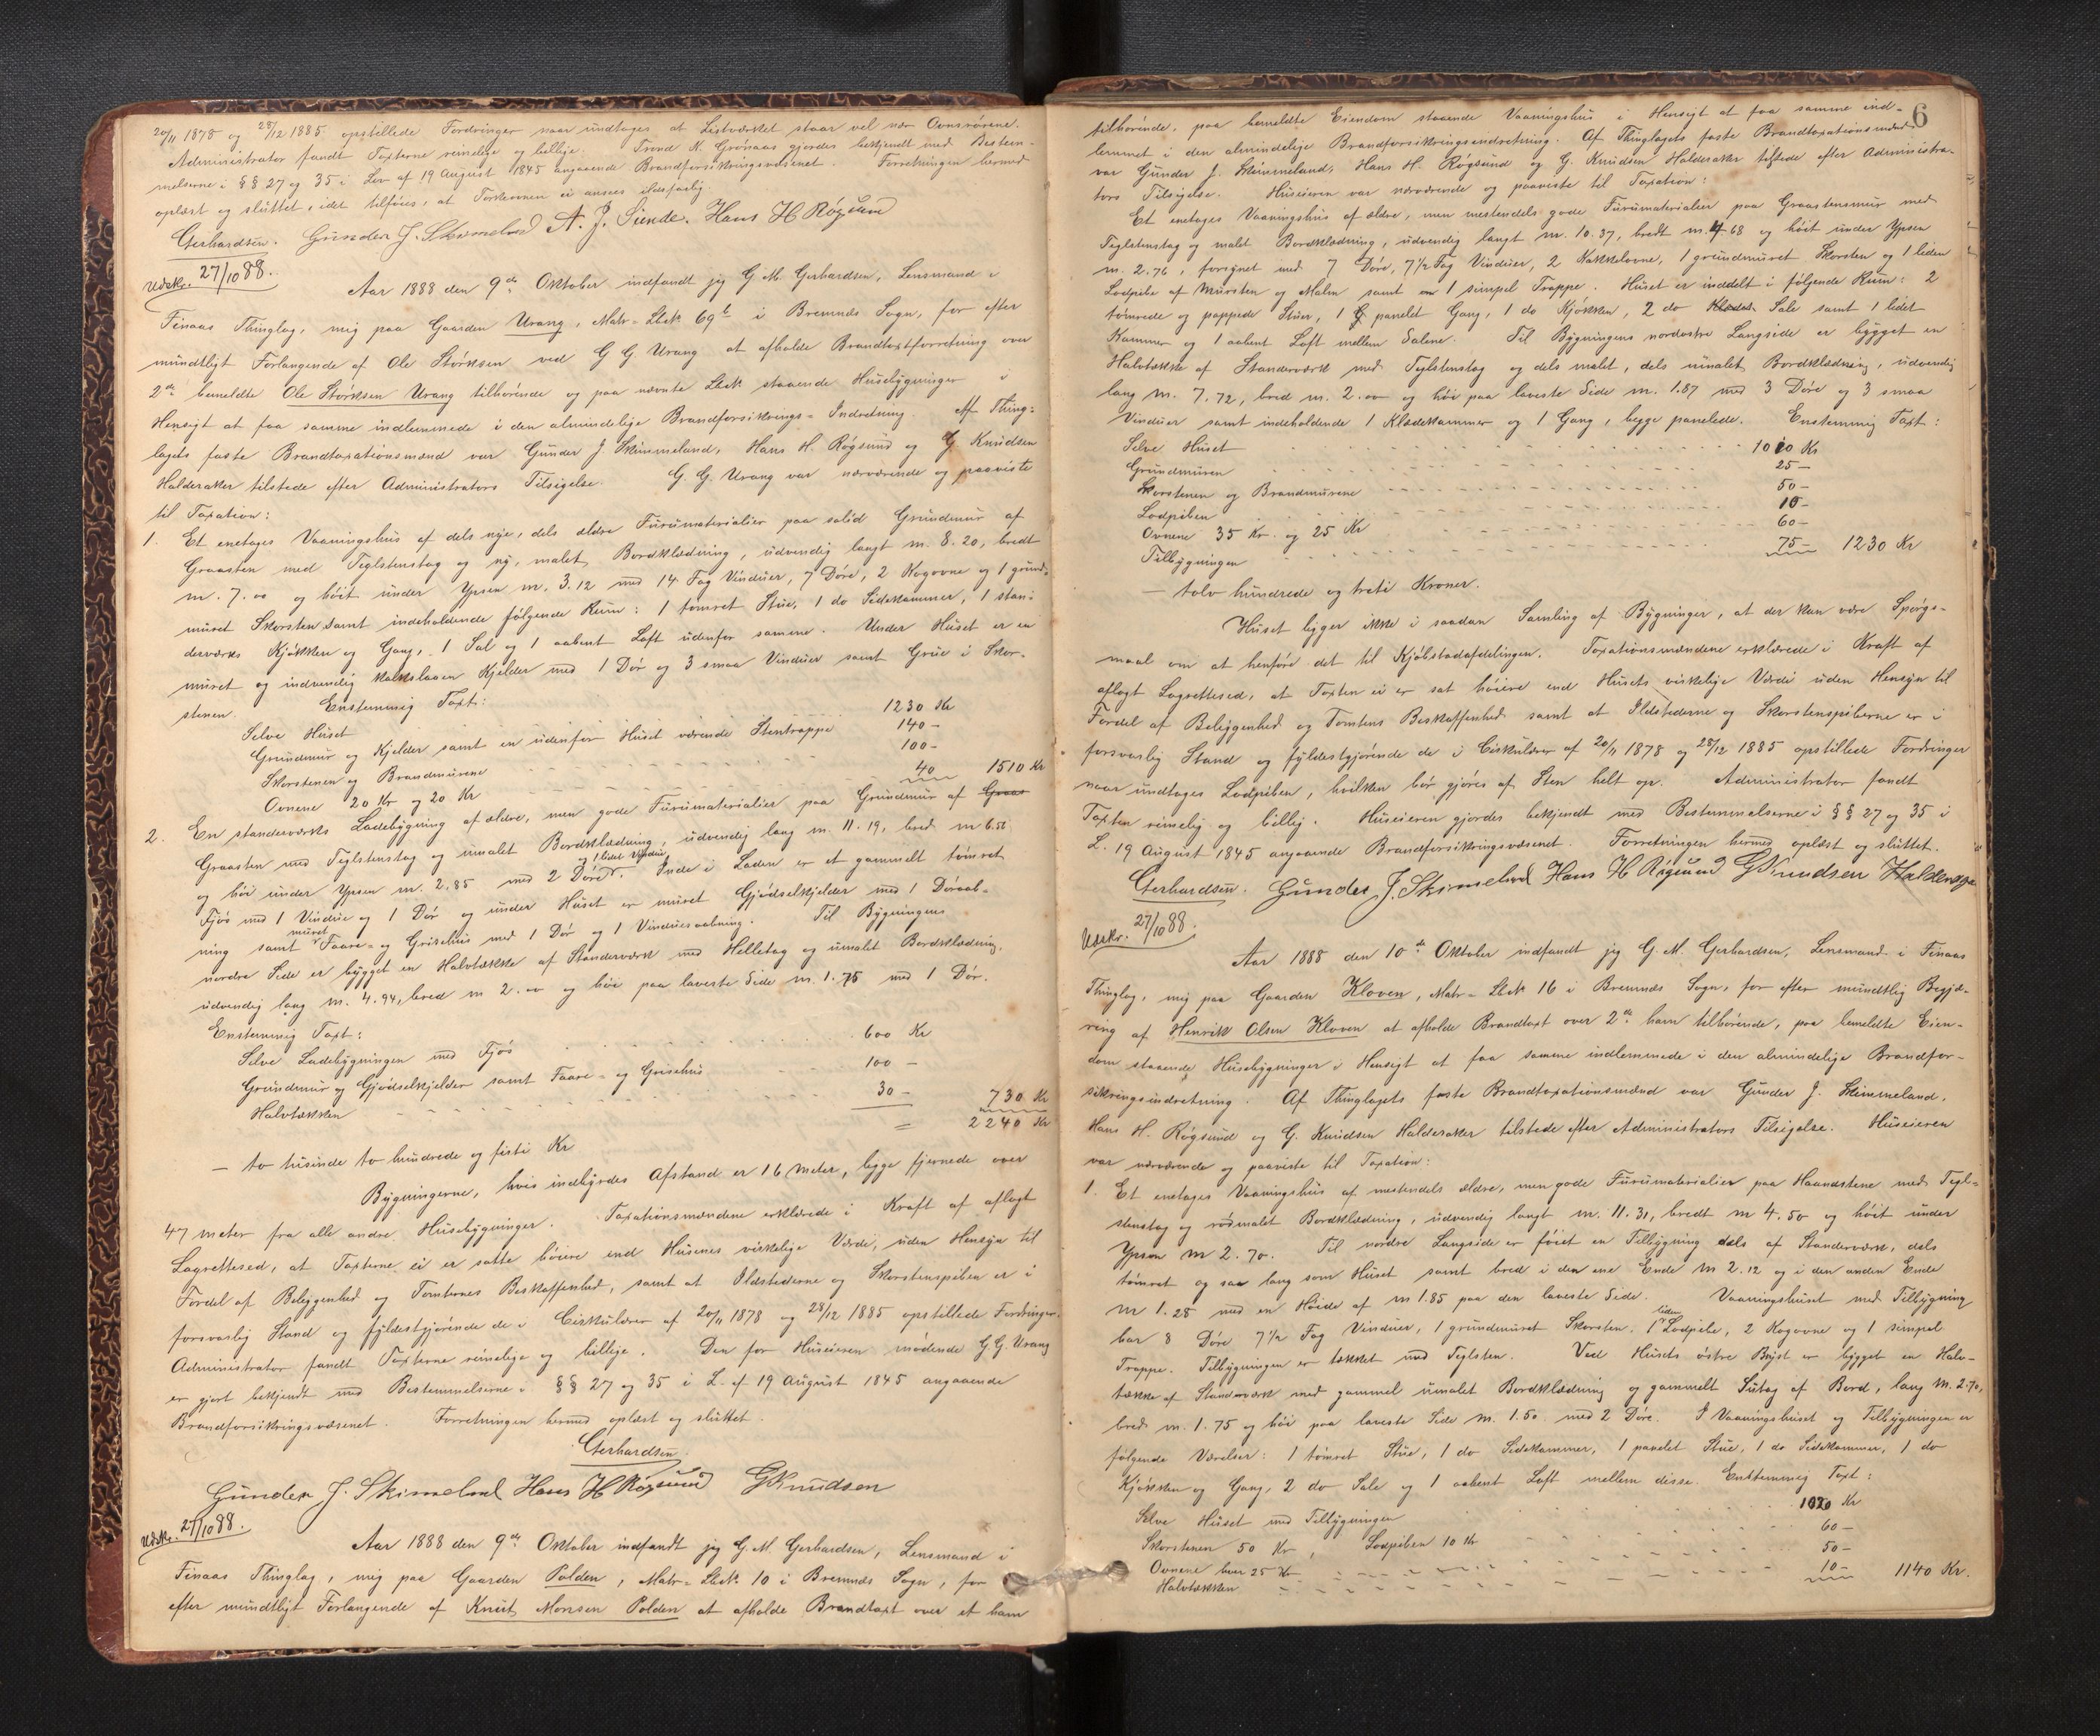 20/11 1878 og 28/12 1885 opstillede Fordringer naar undtages at Listværket staar vel nær Ovnsrørene.
Administrator fandt Taxterne rimelige og billige. Trond N. Grønaas gjordes bekjendt med Bestem-
melserne i §§ 27 og 35 i Lov af 19 August 1845 angaaende Brandforsikringsvæsenet. Forretningen hermed
oplæst og sluttet, idet tilføies, at Torkeovnen ei ansees ildsfarlig
Gerhardsen. Gunder J. Skimeland A. J. Siende. Hans H Røgsund
Udskr. 27/10 88.
Aar 1888 den 9de Oktober indfandt jeg G. M. Gerhardsen, Lensmand i
Finaas Thinglag, mig paa Gaarden Urang, Matr-Lbek 69b i Bremnæs Sogn, for efter
mundtligt Forlangende af Ole Størksen ved G G Urang at afholde Brandtaxtforretning over
2de bemeldte Ole Størksen Urang tilhørende og paa nævnte Lbek staaende Husebygninger i
Hensigt at faa samme indlemmede i den almindelige Brandforsikrings-Indretning. Af Thing-
lagets faste Brandtaxationsmænd var Gunder J. Skimmeland, Hans H. Røgsund og G Knudsen
Halderaker tilstede efter Administrators Tilsigelse. G. G. Urang var nærværende og paaviste
til Taxation:
1. Et enetages Vaaningshus af dels nye, dels ældre Furumaterialier paa solid Grundmur af
Graasten med Teglstenstag og ny, malet Bordklædning, udvendig langt m. 8.20, bredt
m. 7.00 og høit under Ypsen m. 3.12 med 14 Fag Vinduer, 7 Døre, 2 Kogovne og 1 grund-
muret Skorsten samt indeholdende følgende Rum: 1 tømret Stue, 1 do Sidekammer, 1 stan-
derværks Kjøkken og Gang, 1 Sal og 1 aabent Loft udenfor samme. Under Huset er en
muret og indvendig kalkslaaen Kjelder med 1 Dør og 3 smaa Vinduer samt Grue i Skor-
stenen. Enstemmig Taxt:
Selve Huset 1230 Kr
Grundmur og Kjelder samt en udenfor Huset værende Stentrappe 140 -
Skorstenen og Brandmurene 100 -
Ovnene 20 Kr og 20 Kr 40 1510 Kr
2. En standeværks Ladebygning af ældre, men gode Furumaterialier paa Grundmur af Graas
Graasten med Teglstenstag og umalet Bordklædning, udvendig lang m. 11.19, bred m 6.56
og høi under Ypsen m. 2.85 med 2 Døre og 1 lidet Vindue. Inde i Laden er et gammelt tømret
Fjøs med 1 Vindue og 1 Dør og under Huset er muret Gjødselkjelder med 1 Døraab-
ning samt muret Faare- og Grisehus med 1 Dør og 1 Vinduesaabning. Til Bygningens
nordre Side er bygget en Halvtække af Standerværk med Helletag og umalet Bordklædning,
udvendig lang m. 4.94, bred m 2.00 og høi paa laveste Side m. 1.75 med 1 Dør.
Enstemmig Taxt:
Selve Ladebygningen med Fjøs 600 Kr
Grundmur og Gjødselkjelder samt Faare- og Grisehus 100 -
Halvtækken 30 - 730 Kr
= 2240 Kr
- to tusinde to hundrede og firti Kr
Bygningerne, hvis indbyrdes Afstand er 16 Meter, ligge fjernede over
47 meter fra alle andre Husebygninger. Taxationsmændene erklærede i Kraft af aflagt
Lagrettesed, at Taxterne ei er satte høiere end Husenes virkelige Værdi, uden Hensyn til
Fordel af Beliggenhed og Tomternes Beskaffenhed, samt at Ildstederne og Skorstenspiben er i
forsvarlig Stand og fyldestgjørende de i Cirkulærer af 20/11 1878 og 28/12 1885 opstillede Fordringer.
Administrator fandt Taxterne rimelige og billige. Den for Huseieren mødende G. G. Urang
er gjort bekjendt med Bestemmelserne i §§ 27 og 35 i L. af 19 August 1845 angaaende
Brandforsikringsvæsenet. Forretningen hermed oplæst og sluttet.
Gerhardsen.
Gunder J. Skimeland Hans H Røgsund GKnudsen
Udskr. 27/10 88.
Aar 1888 den 9de Oktober indfandt jeg G. M. Gerhardsen, Lensmand i
Finaas Thinglag, mig paa Gaarden Polden, Matr-Lbek 10 i Bremnæs Sogn, for
efter mundtligt Forlangende af Knut Monsen Polden at afholde Brandtaxt over et ham
6
tilhørende, paa bemeldte Eiendom staaende Vaaningshus i Hensigt at faa samme ind-
lemmet i den almindelige Brandforsikringsindretning. Af Thinglagets faste Brandtaxationsmænd
var Gunder J. Skimmeland, Hans H. Røgsund og G. Knudsen Halderaker tilstede efter Administra-
tors Tilsigelse. Huseieren var nærværende og paaviste til Taxation:
Et enetages Vaaningshus af ældre, men mestendels gode Furumaterialier paa Graastensmur med
Teglstenstag og malet Bordklædning, udvendig langt m. 10.37, bredt m. 4.68 og høit under Ypsen
m. 2.76, forsynet med 7 Døre, 7 1/2 Fag Vinduer, 2 Kakkelovne, 1 grundmuret Skorsten og 1 liden
Lodpibe af Mursten og Malm samt 1 simpel Trappe. Huset er inddelt i følgende Rum: 2
tømrede og pappede Stuer, 1 panelet Gang, 1 do Kjøkken, 2 do Sale samt 1 lidet
Kammer og 1 aabent Loft mellem Salene. Til Bygningens nordøstre Langside er bygget en
Halvtække af Standerværk med Teglstenstag og dels malet, dels umalet Bordklædning, udvendig
lang m. 7.72, bred m. 2.00 og høi paa laveste Side m. 1.87 med 3 Døre og 3 smaa
Vinduer samt indeholdende 1 Klædekammer og 1 Gang, begge panelede. Enstemmig Taxt:
Selve Huset 1010 Kr
Grundmuren 25 -
Skorstenen og Brandmurene 50 -
Lodpiben 10 -
Ovnene 35 Kr. og 25 Kr 60 -
Tilbygningen 75 - 1230 Kr
- tolv hundrede og treti Kroner.
Huset ligger ikke i saadan Samling af Bygninger, at der kan være Spørgs-
maal om at henføre det til Kjøbstadafdelingen. Taxationsmændene erklærede i Kraft af
aflagt Lagrettesed, at Taxten ei er sat høiere end Husets virkelige Værdi uden Hensyn til
Fordel af Beliggenhed og Tomtens Beskaffenhed samt at Ildstederne og Skorstenspiberne er i
forsvarlig Stand og fyldestgjørende de i Cirkulærer af 20/11 1878 og 28/12 1885 opstillede Fordringer
naar undtages Lodpiben, hvilken bør gjøres af Sten helt op. Administrator fandt
Taxten rimelig og billig. Huseieren gjordes bekjendt med Bestemmelserne i §§ 27 og 35 i
L. 19 August 1845 angaaende Brandforsikringsvæsenet. Forretningen hermed oplæst og sluttet.
Gerhardsen. Gunder J. Skimeland Hans H Røgsund GKnudsen Halderager
Udskr. 27/10 88.
Aar 1888 den 10de Oktober indfandt jeg G. M. Gerhardsen, Lensmand i Finaas
Thinglag, mig paa Gaarden Kloven, Matr-Lbek 16 i Bremnæs Sogn, for efter mundtlig Begjæ-
ring af Henrik Olsen Kloven at afholde Brandtaxt over 2de ham tilhørende, paa bemeldte Eien-
dom staaende Husebygninger i Hensigt at faa samme indlemmede i den almindelige Brandfor-
sikringsindretning. Af Thinglagets faste Brandtaxationsmænd var Gunder J. Skimmeland,
Hans H. Røgsund og G. Knudsen Halderaker tilstede efter Administrators Tilsigelse. Huseieren
var nærværende og paaviste til Taxation:
1. Et enetages Vaaningshus af mestendels ældre, men gode Furumaterialier paa Haandstene med Tegl-
stenstag og rødmalet Bordklædning, udvendig langt m. 11.31, bredt m 4.50 og høit under
Ypsen m 2.70. Til nordre Langside er føiet en Tilbygning dels af Standerværk, dels
tømret og saa lang som Huset samt bred i den ene Ende m 2.12 og i den anden Ende
m 1.28 med en Høide af m 1.85 paa den laveste Side. Vaaningshuset med Tilbygning
har 8 Døre 7 1/2 Fag Vinduer, 1 grundmuret Skorsten, 1 liden Lodpibe, 2 Kogovne og 1 simpel
Trappe. Tilbygningen er tækket med Teglsten. Ved Husets østre Bryst er bygget en Halv-
tække af Standerværk med gammel umalet Bordklædning og gammelt Sutag af Bord, lang m. 2.70,
bred m. 1.75 og høi paa laveste Side m. 1.50 med 2 Døre. I Vaaningshuset og Tilbygningen er
følgende Værelser: 1 tømret Stue, 1 do Sidekammer, 1 panelet Stue, 1 do Sidekammer, 1 do
Kjøkken og Gang, 2 do Sale og 1 aabent Loft mellem disse. Enstemmig Taxt:
Selve Huset med Tilbygningen 1020 Kr
Skorstenen 50 Kr, Lodpiben 10 Kr 60 -
Ovnene hver 25 Kr 50 -
Halvtækken 10 - 1140 Kr.